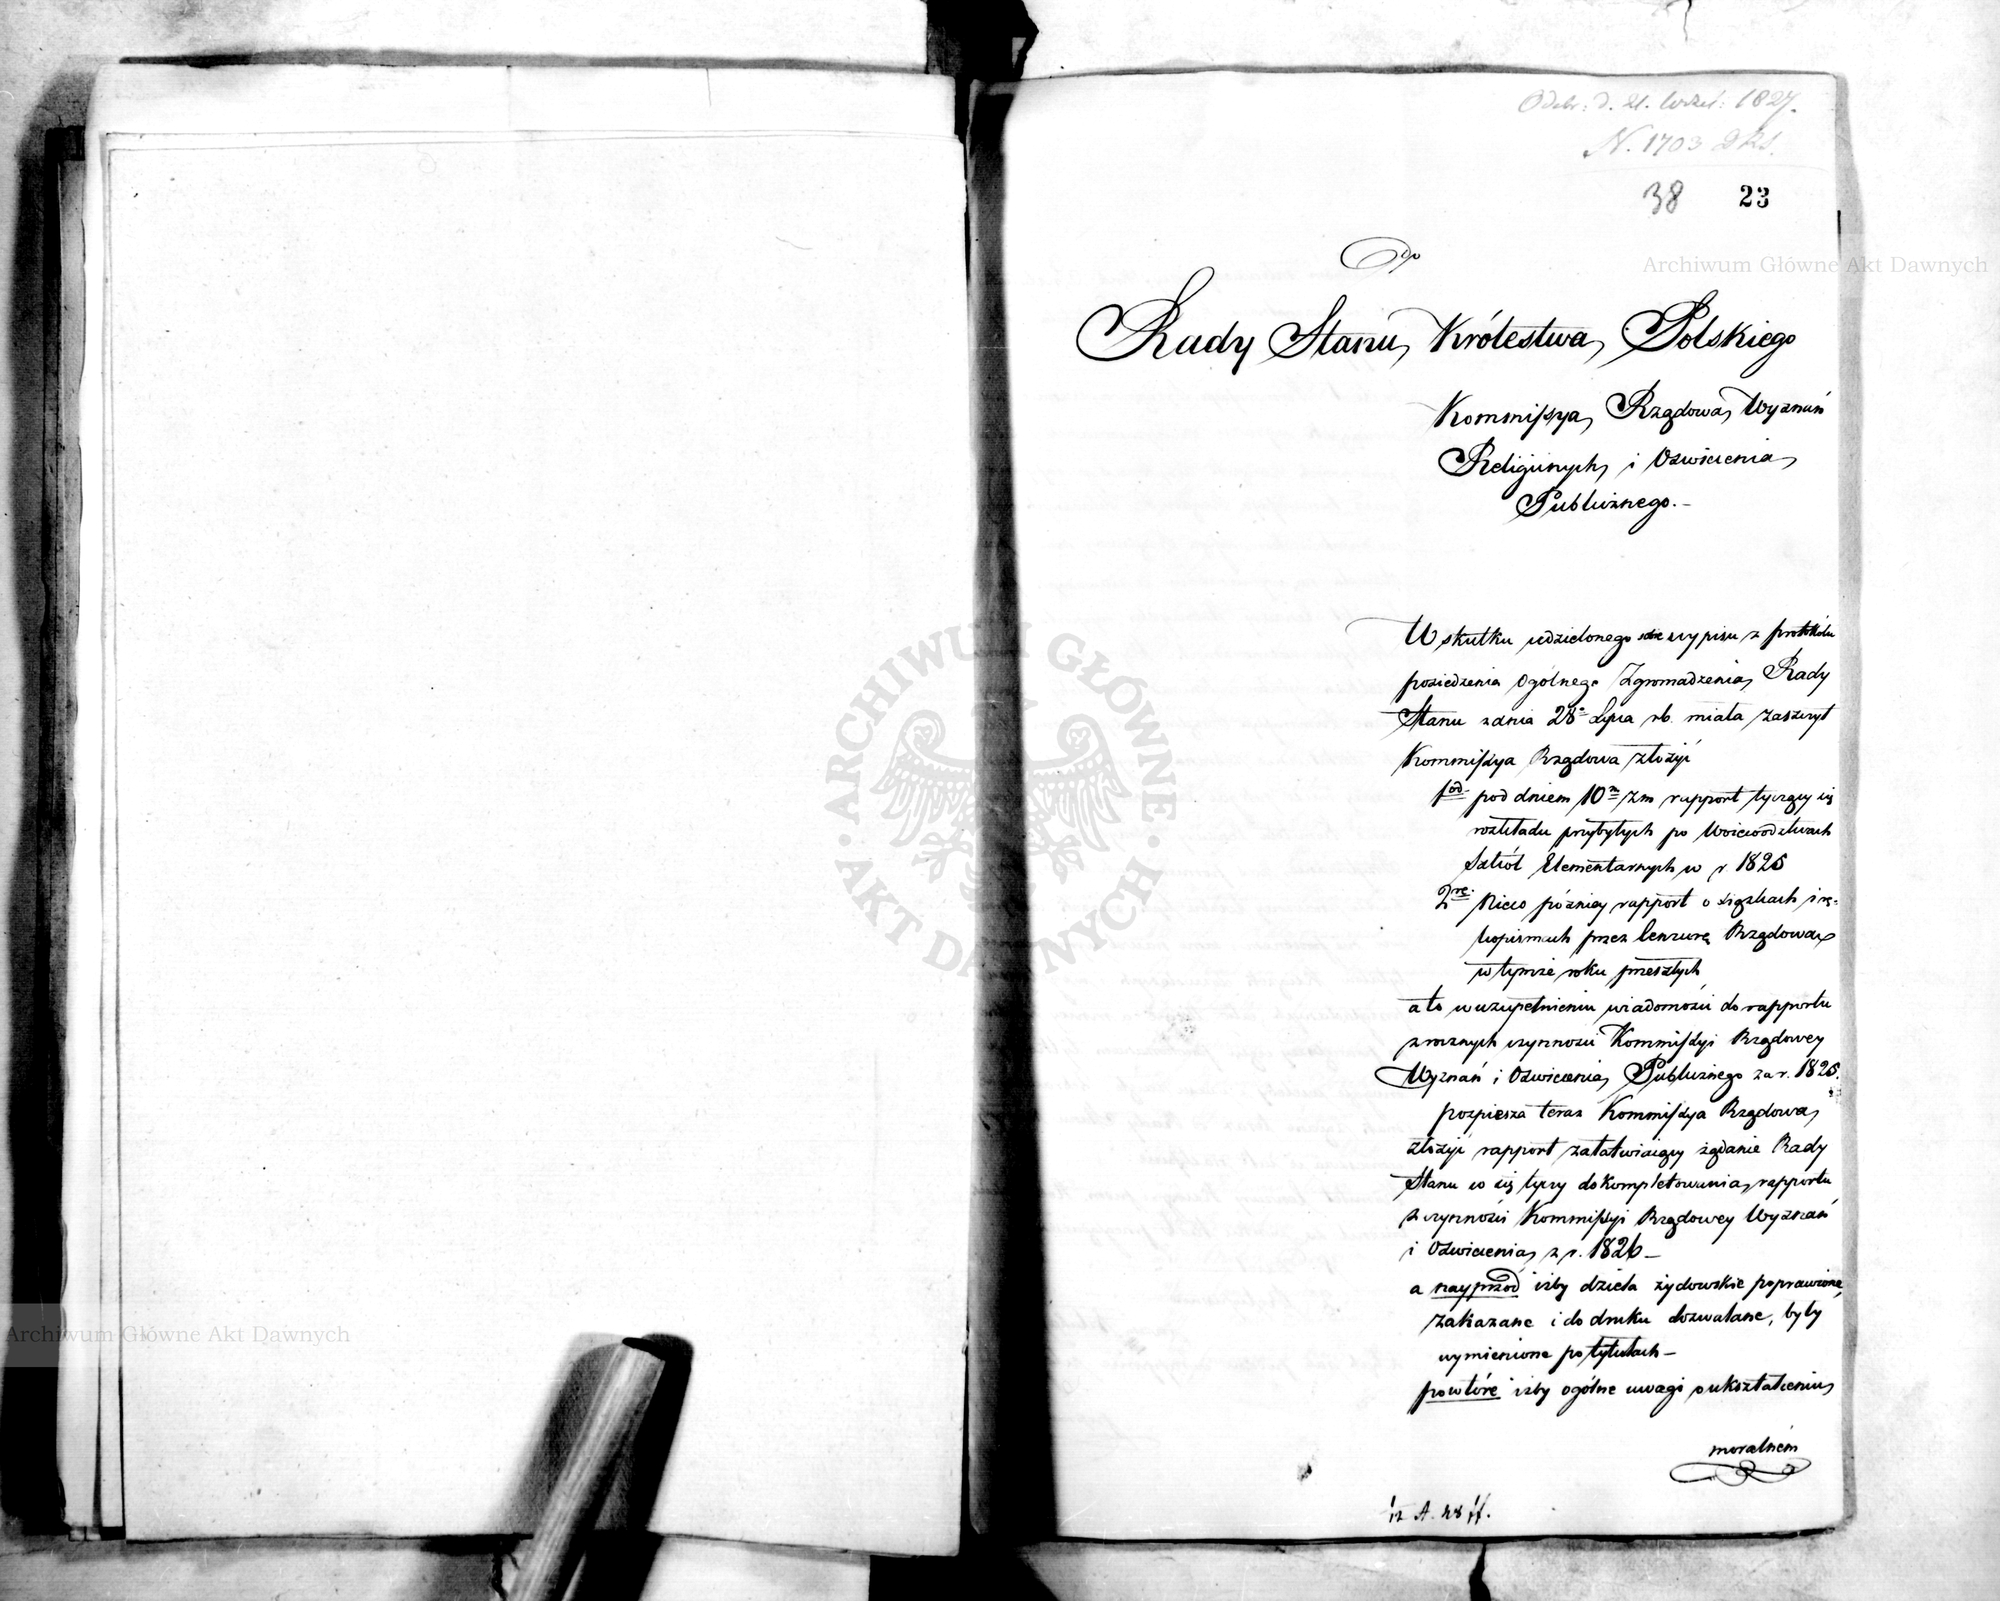 Odebr: d. 21. Wrześ: 1827.
N. 1703 Dks.
38 23
Do
Rady Stanu Królestwa Polskiego
Kommissya Rządowa Wyznań
Religiinych i Oświecenia
Publicznego.-
W skutku udzielonego sobie wypisu z protokółu
posiedzenia Ogólnego Zgromadzenia Rady
Stanu z dnia 28° Lipca rb. miała zaszczyt
Kommissya Rządowa złożyć
1od. pod dniem 10m zm rapport tyczący się
rozkładu przybyłych po Woiewodztwach
Szkół Elementarnych w r. 1825
2re. Nieco późniey rapport o książkach i rę-
kopismach przez Cenzurę Rządową
w tymże roku przeszłych
a to w uzupełnieniu wiadomości do rapportu
z rocznych czynności Kommissyi Rządowey
Wyznań i Oświecenia Publicznego za r. 1825.
pospiesza teraz Kommissya Rządowa
złożyć rapport załatwiaiący żądanie Rady
Stanu co się tyczy dokompletowania rapportu
z czynności Kommissyi Rządowey Wyznań
i Oświecenia z r. 1826-
a nayprzód iżby dzieła żydowskie poprawione,
zakazane i do druku dozwalane, były
wymienione po tytułach-
powtóre iżby ogólne uwagi o ukształceniu
moralném
12 A. 28
Archiwum Główne Akt Dawnych
Archiwum Główne Akt Dawnych
ARCHIWUM GŁÓWNE · AKT DAWNYCH ·